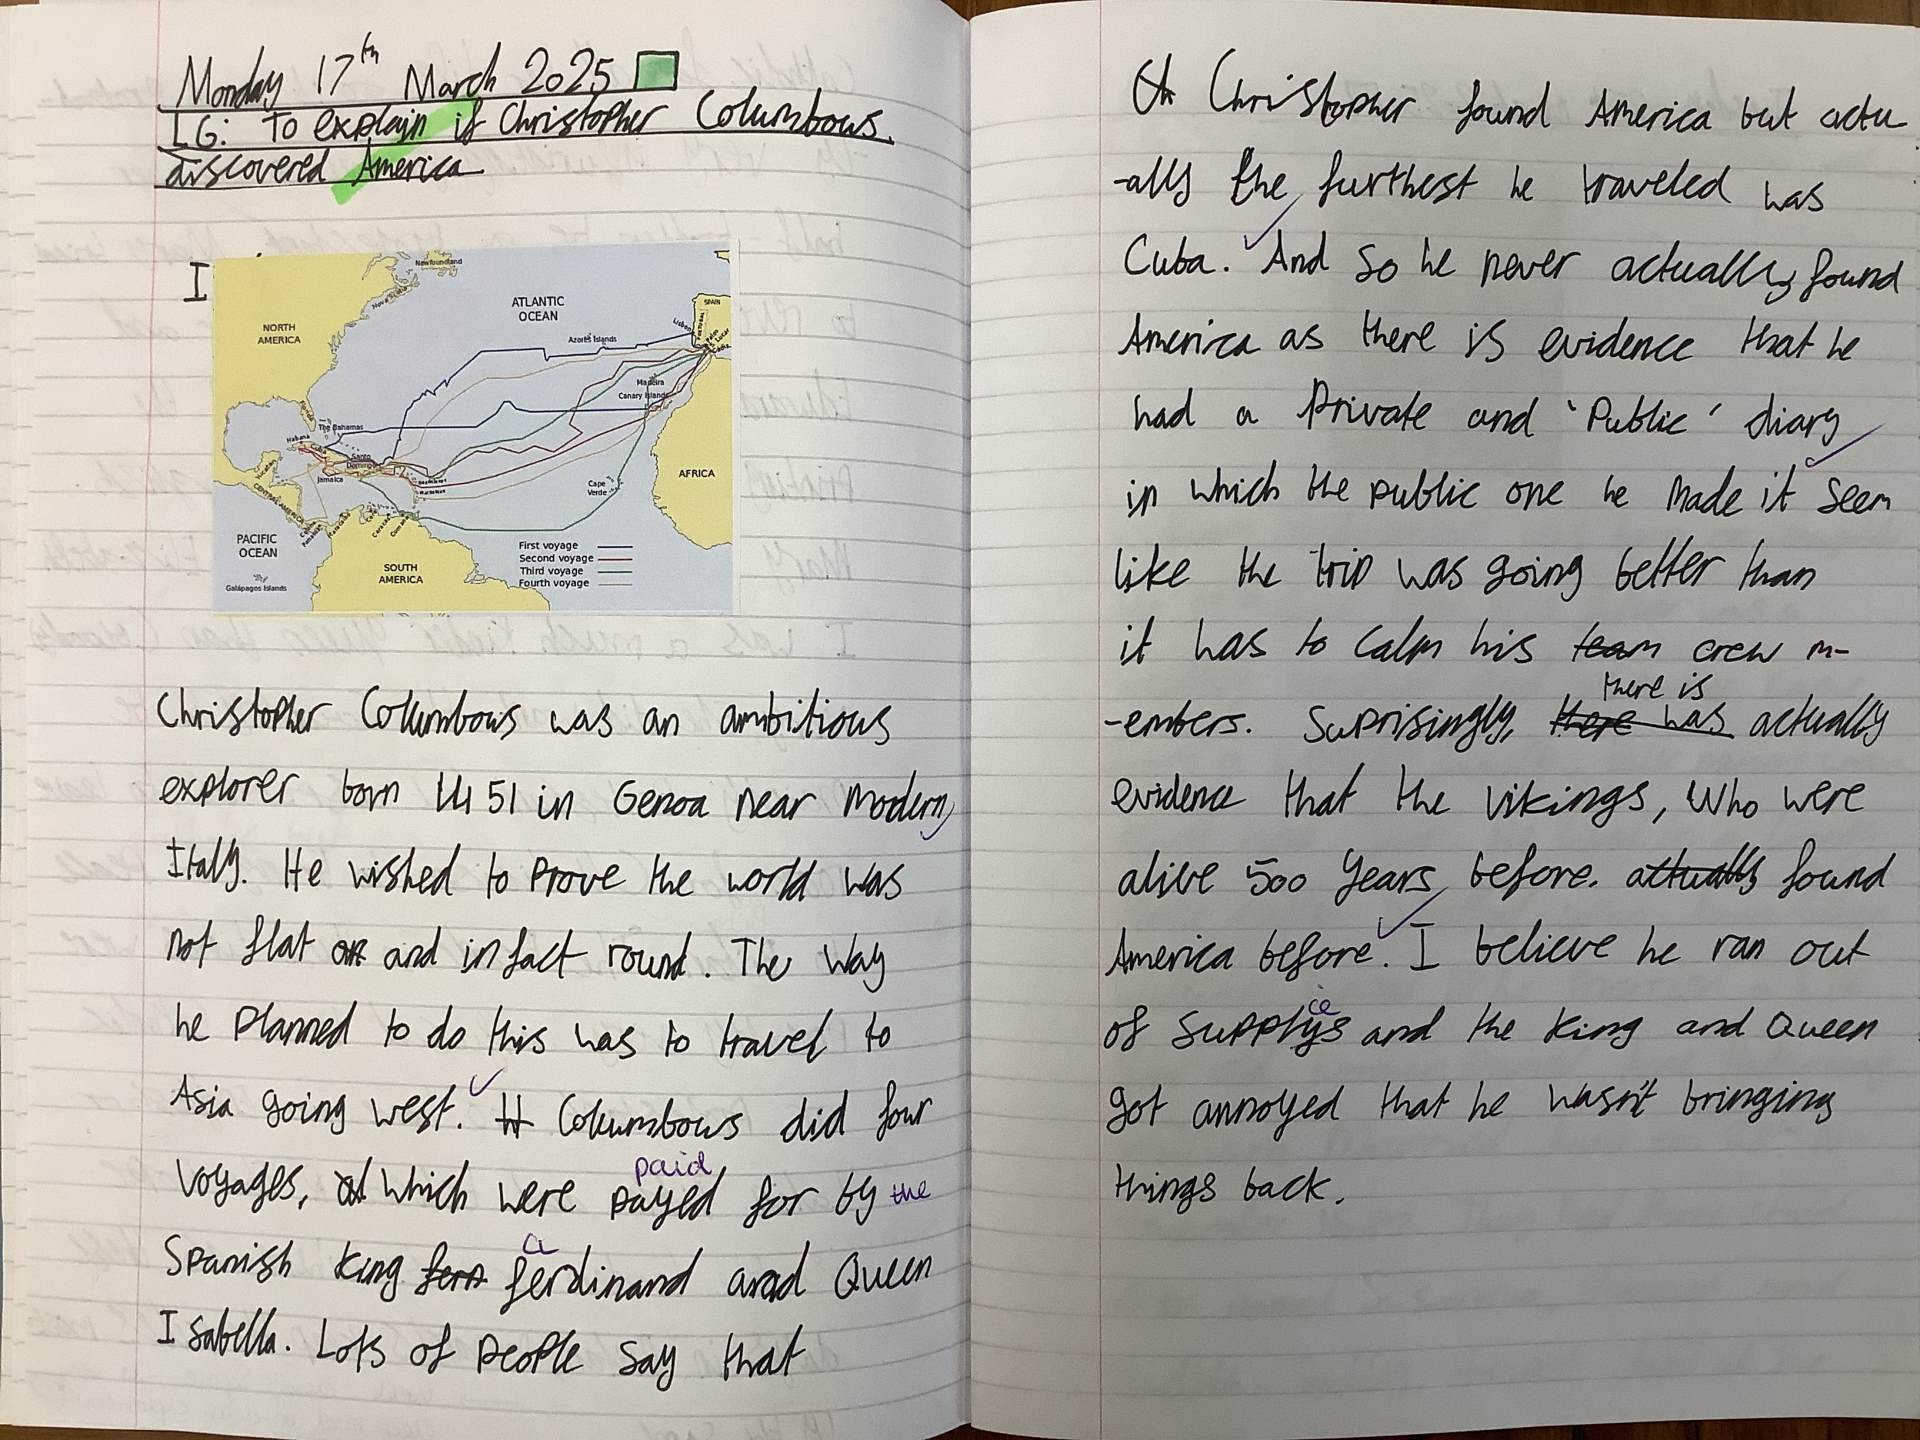 Monday 17th March 2025
LG: To explain if Christopher Columbows
discovered America
I
Newfoundland
Nova Scotia
NORTH
AMERICA
ATLANTIC
OCEAN
SPAIN
PORTUGAL
Lisbon
Azores Islands
Madeira
Canary Islands
Florida
The Bahamas
Habana
Cuba
Santo
Domingo
Jamaica
CENTRAL AMERICA
Cape
Verde
AFRICA
PACIFIC
OCEAN
SOUTH
AMERICA
Galápagos Islands
First voyage
Second voyage
Third voyage
Fourth voyage
Christopher Columbows was an ambitious
explorer born 1451 in Genoa near modern
Italy. He wished to prove the world was
not flat and in fact round. The way
he planned to do this was to travel to
Asia going west. Columbows did four
paid
voyages, which were payed for by the
a
Spanish king fern ferdinand and Queen
Isabella. Lots of people say that
Christopher found America but actu
-ally the furthest he traveled was
Cuba. And so he never actually found
America as there is evidence that he
had a private and 'Public' diary
in which the public one he made it seem
like the trip was going better than
it was to calm his team crew m-
there is
-embers. Suprisingly, there was actually
evidence that the vikings, who were
alive 500 years before. actually found
America before. I believe he ran out
ie
of supplys and the king and Queen
got annoyed that he wasn't bringing
things back.